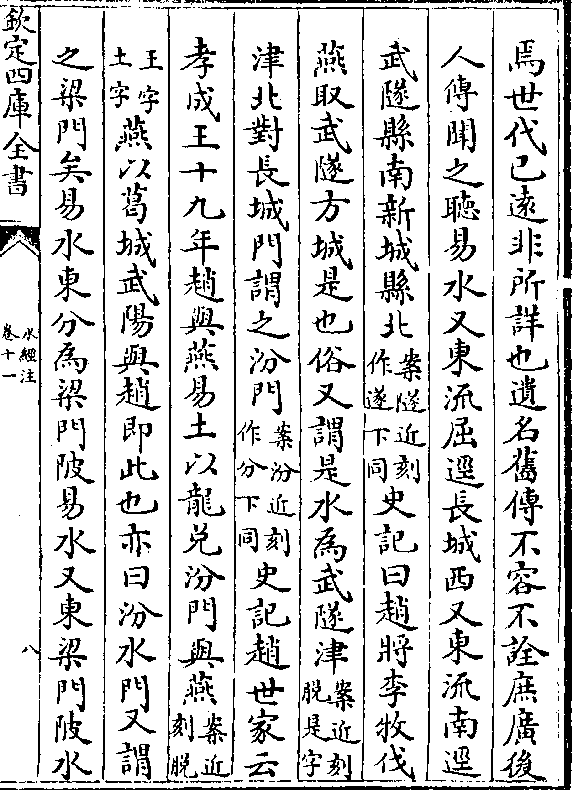 焉世代已遠非所詳也遺名舊傳不容不詮庶廣後
人傳聞之聽易水又東流屈逕長城西又東流南逕
武隧縣南新城縣北案隧近刻作遂下同史記曰趙將李牧伐
燕取武隧方城是也俗又謂是水為武隧津案近刻脱是字
津北對長城門謂之汾門案汾近刻作分下同史記趙世家云
孝成王十九年趙與燕易土以龍兌汾門與燕案近刻脱
王字土字燕以葛城武陽與趙即此也亦曰汾水門又謂
之梁門矣易水東分為梁門陂易水又東梁門陂水
欽定四庫全書
水經注
卷十一
八